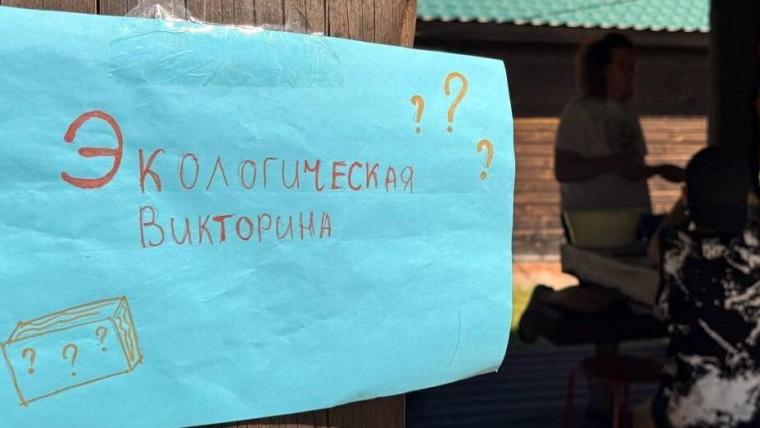 Экологическая
Викторина
? ? ?
? ? ?